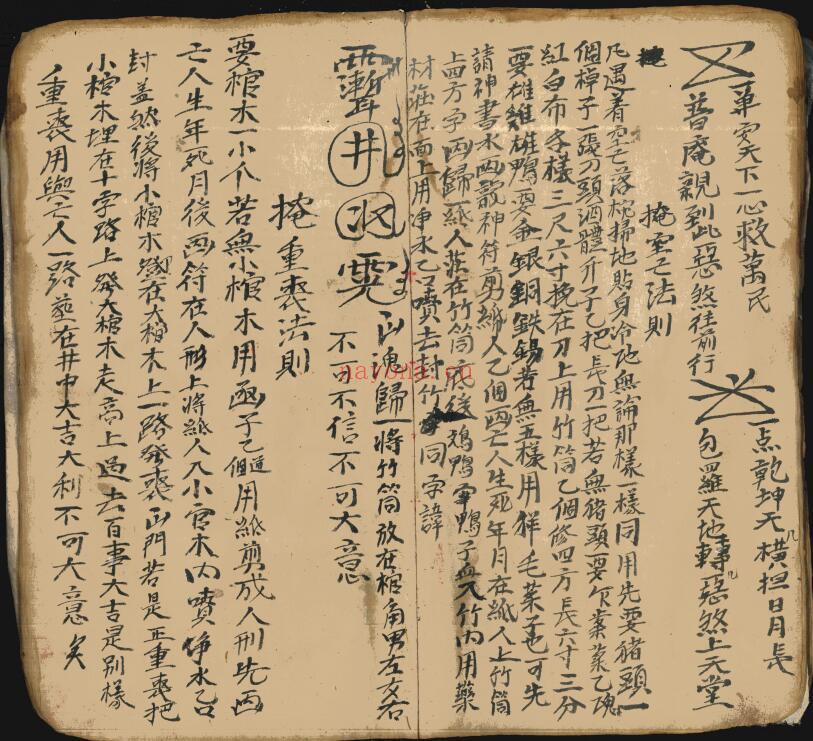 一点乾坤大橫担日月長
包羅天地轉惡煞上天堂
單安天下一心救萬民
普庵親到此惡煞往前行
掩空亡法則
凡遇着空亡落棺掃地貼身冷地無論那樣一樣同用先要猪頭一
個棹子一張刀頭酒醴升子乙把長刀一把若無猪頭要乍羕菜乙塊
紅白布手樣三尺六寸挽在刀上用竹筒乙個修四方長六寸三分
要雄雞雄鴨要金銀銅鉄錫若無五樣用胖毛葉子也可先
請神書水兩散神符剪紙人乙個画亡人生死年月在紙人上竹筒
上画方字内歸一紙人莊在竹筒底後鴉鴨宰鴨子血入竹内用藥
材莊在面上用净水乙口噴去封竹同字諱
井
魂歸一將竹筒放在棺角男左女右
不可不信不可大意
掩重喪法則
要棺木一小个若無小棺木用函子乙個用紙剪成人形先画
亡人生年死月後画符在人形上將紙人入小官木内噴净水乙口
封盖然後將小棺木綁在大棺木上一路發喪出門若是正重喪把
小棺木埋在十字路上發大棺木走高上過去百事大吉是別樣
重喪用與亡人一路葬在井中大吉大利不可大意矣
nayona.cn